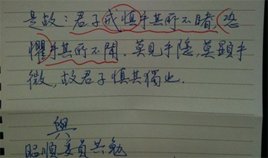 是故：君子戒慎乎其所不睹，恐
懼乎其所不聞。莫見乎隱，莫顯乎
微，故君子慎其獨也。
與
昭順委員共勉